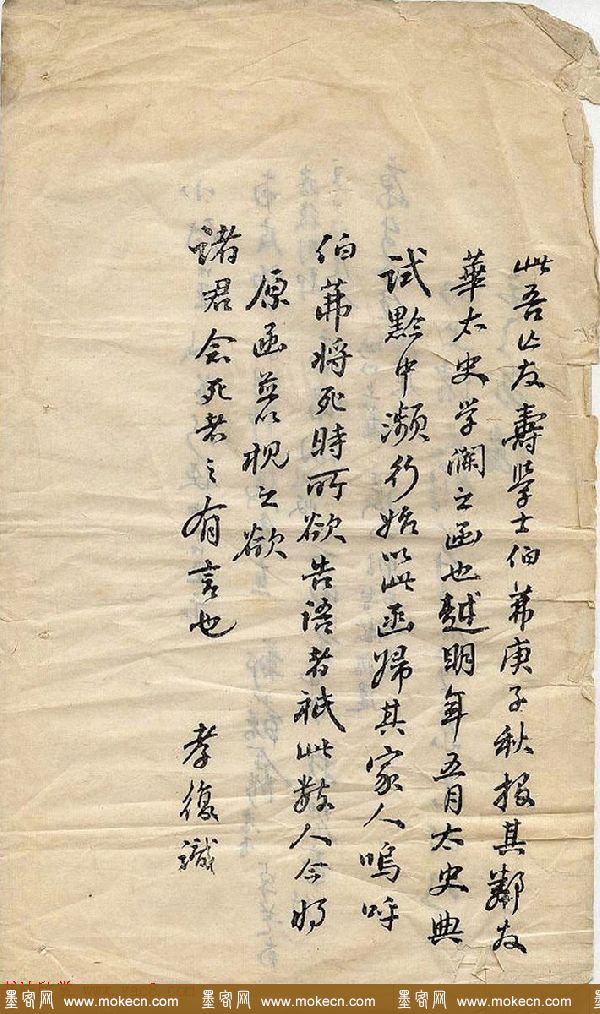 此吾亡友壽學士伯茀庚子秋報其鄰友
華太史學瀾之函也越明年五月太史典
試黔中瀕行始以此函歸其家人嗚呼
伯茀將死時所欲告語者祇此數人今將
原函並以視之欲
諸君念死者之有言也
孝復識
墨客网 www.mokecn.com 墨客网 www.mokecn.com 墨客网 www.mokecn.com